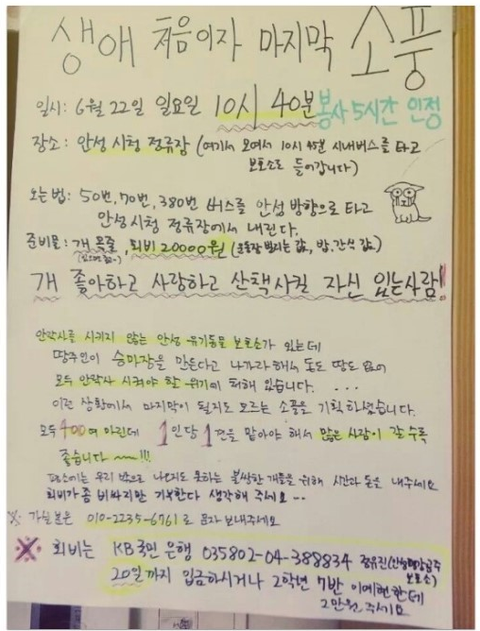 생애 처음이자 마지막 소풍
일시: 6월 22일 일요일 10시 40분 봉사 5시간 인정
장소: 안성 시청 정류장 (여기서 모여서 10시 45분 시내버스를 타고
보호소로 들어갑니다)
오는법: 50번, 70번, 380번 버스를 안성 방향으로 타고
안성시청 정류장에서 내린다.
준비물: 개 목줄, 회비 20000원 (운동장 빌리는 값, 밥, 간식 값)
개 좋아하고 사랑하고 산책시킬 자신 있는사람!!
안락사를 시키지 않는 안성 유기동물 보호소가 있는데
땅주인이 승마장을 만든다고 나가라 해서 돈도 땅도 없어
모두 안락사 시켜야 할 위기에 처해 있습니다. ....
이런 상황에서 마지막이 될지도 모르는 소풍을 기획하셨습니다.
모두 400여 마린데 1인당 1견을 맡아야 해서 많은 사람이 갈 수록
좋습니다 ~~!!!
평소에는 우리 밖으로 나오지도 못하는 불쌍한 개들을 위해 시간과 돈을 내주세요
회비가 좀 비싸지만 기부한다 생각해 주세요..
※ 가실분은 010-2235-6761로 문자 보내주세요
※ 회비는 KB국민 은행 035802-04-388834 정유진(
보호소)
20일까지 입금하시거나 2학년 7반 이예현한테
2만원 주세요